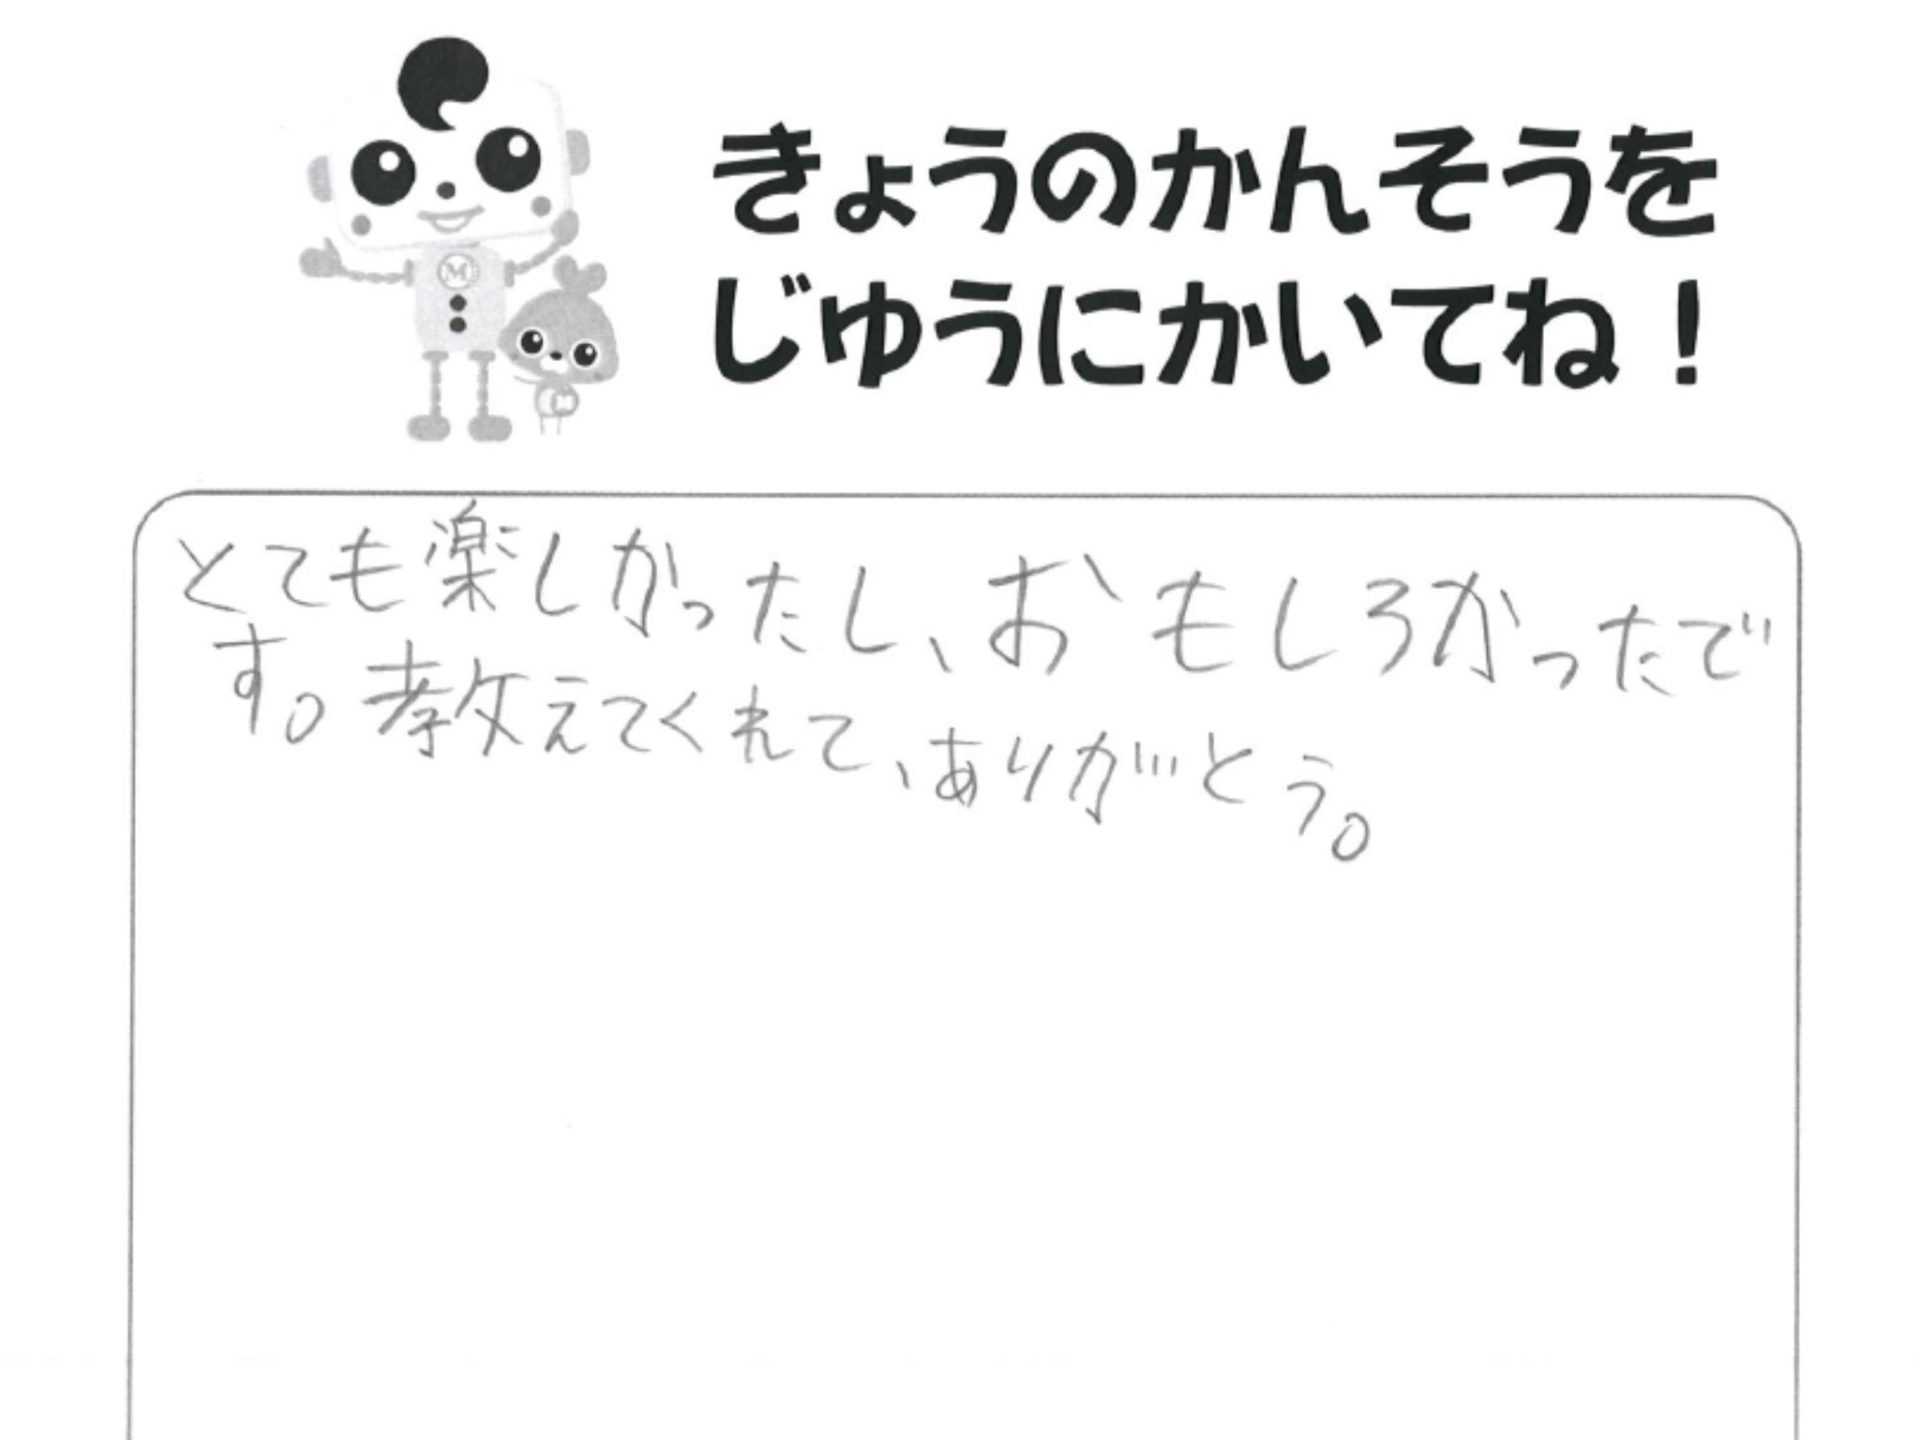 きょうのかんそうを
じゆうにかいてね！
M
M
とても楽しかったし、おもしろかったで
す。教えてくれて、ありがとう。